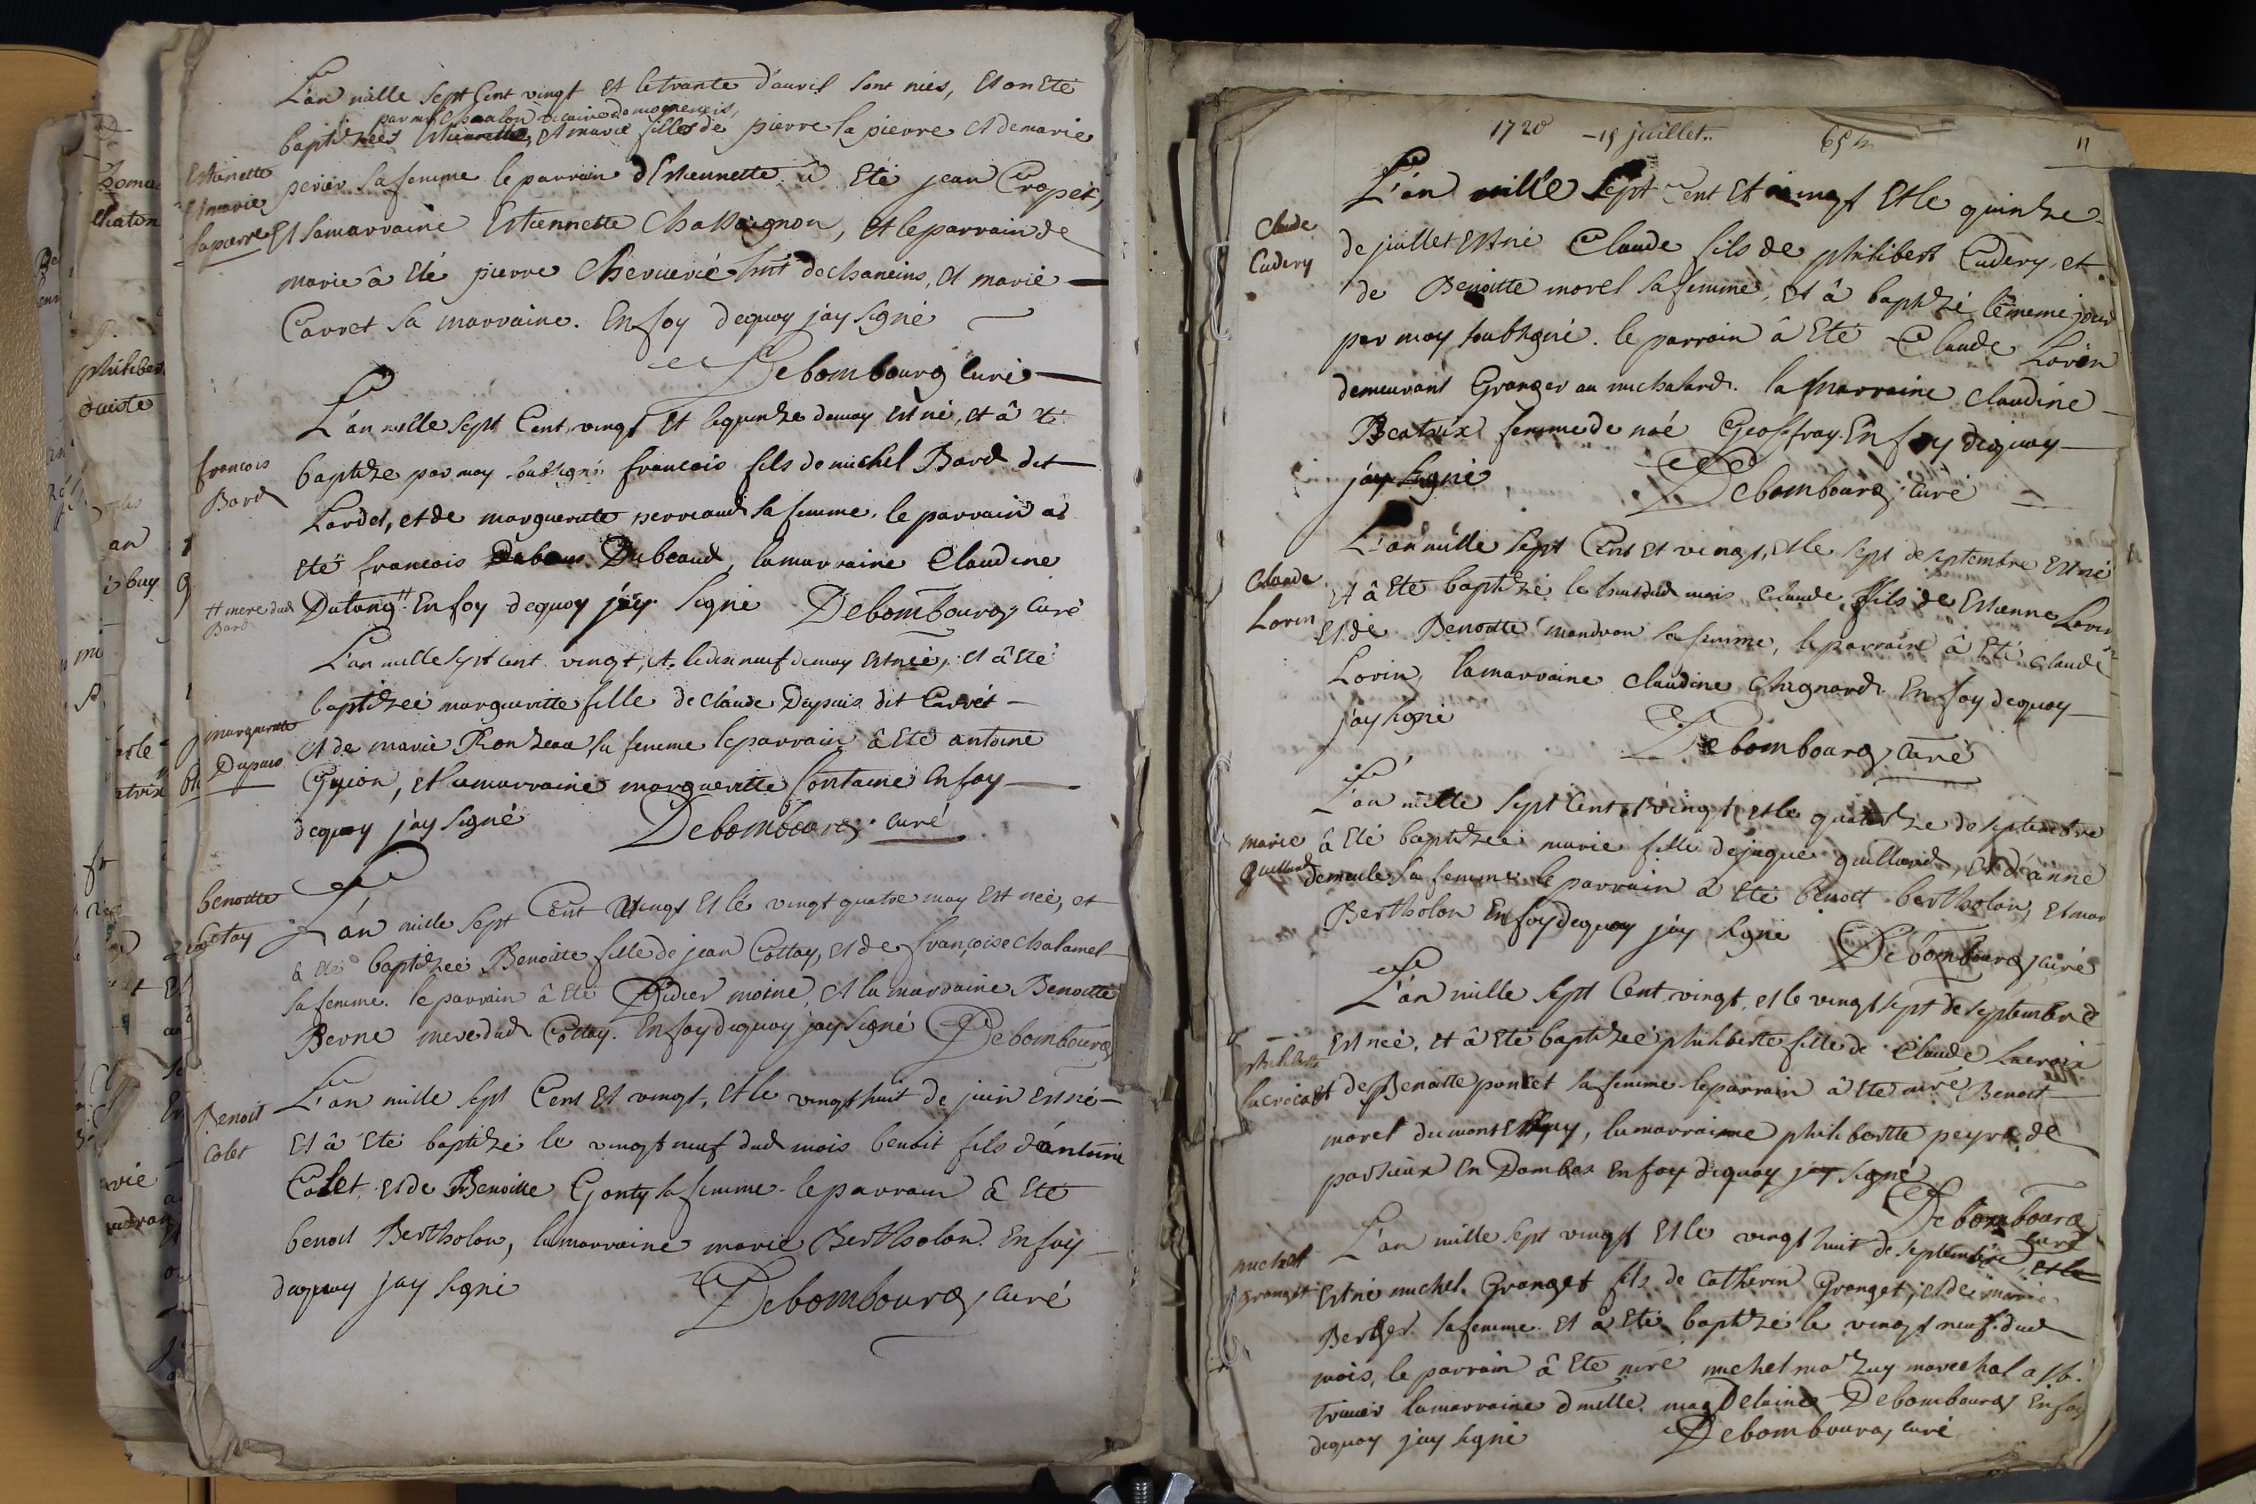 L'an mille sept Cent vingt et le trante d'auril sont nées, et on eté
par mr Chualon vicaire de mogneneis,
baptizées Estiennette, et marie filles de pierre la pierre et de marie
Estienette
et marie
la pierre
perier sa femme le parrain d'Estiennette a eté jean Cropet,
Et sa marraine Estiennette Chassaignon, et le parrain de
marie â eté pierre Cheruerié hnt de chaneins, et marie
Carret sa marraine. En foy dequoy jay signé
Debombourg Curé
L'an mille sept Cent vingt et le quinze de may est né, et â eté
francois
Bard
baptize par moy soubsigné francois fils de michel Bard dit
Lardet, et de margueritte perreaud sa femme. le parrain a
eté francois Dubeaud, la marraine Claudine
Dutang ++ En foy dequoy jay signé Debombourg Curé
++ mere dud
Bard
L'an mille sept cent vingt, et le dix neuf de may est neé, et â eté
baptizeé margueritte fille de Claude Dupuis dit Carret
margueritte
Dupuis
et de marie Rondeau sa femme le parrain â eté antoine
Guion, et la marraine margueritte fontaine En foy
dequoy j'ay signé Debombourg curé
benoitte
Cottay
L'an mille sept Cent vingt et le vingt quatre may est neé, et
â eté baptizeé Benoitte fille de jean Cottay, et de françoise chalamel
sa femme. le parrain â eté Didier moine, et la marraine Benoitte
Berne mere dud Cottay. En foy dequoy jay signé Debombourg
L'an mille sept Cent et vingt, et le vingt huit de juin est né
Benoit
Colet
et â eté baptizé le vingt neuf dud mois benoit fils d'antoine
Colet et de Benoitte Gonty sa femme. le parrain â eté
benoit Bertholon, la marraine marie Bertholon. En foy
dequoy jay signé Debombourg curé
1720 - 15 juillet.. 11
L'an mille sept Cent et vingt et le quinze
Claude
Cudery
de juillet est né Claude fils de philibert Cudery, et
de Benoitte morel sa femme, et â baptizé le meme jour
par moy soubsigné. le parrain â eté Claude Lorin
demeurant Granger au michalard. la marraine Claudine
Beatrix femme de noé Geoffray. En foy dequoy
jay signé Debombourg, curé
L'an mille sept Cent et vingt, et le sept de septembre est né
Claude
Lorin
et â eté baptizé le huit dud mois Claude fils de Estienne Lorin
et de Benoitte mandron sa femme, le parrain â eté Claude
Lorin, la marraine Claudine Chignard. En foy dequoy
j'ay signé Debombourg, curé
L'an mille sept Cent et vingt, et le quatorze de septembre
marie
guilland
â eté baptizeé marie fille de jaque guillard, et d'anne
demeule sa femme. le parrain â eté benoit bertholon, et mar
Bertholon En foy dequoy jay signé Debombourg, curé
L'an mille sept Cent vingt, et le vingt sept de septembre
est neé, et â eté baptizeé philiberte fille de Claude Lacroix
philiberte
Lacroix
et de Benoitte poncet sa femme le parrain â eté mre Benoit
morel du mont, la marraine philibertte peyre de
parsieux en Dombes En foy dequoy jay signé
Debombourg
curé
L'an mille sept vingt et le vingt huit de septembre
michel
granget
est né michel Granget fils de Catherin Granget, et de marie
Berger sa femme. et â eté baptizé le vingt neuf dud
mois, le parrain â eté mre michel mazuy marechal a st.
Triuier la marraine dmelle magdelaine Debombourg En foy
dequoy jay signé Debombourg curé